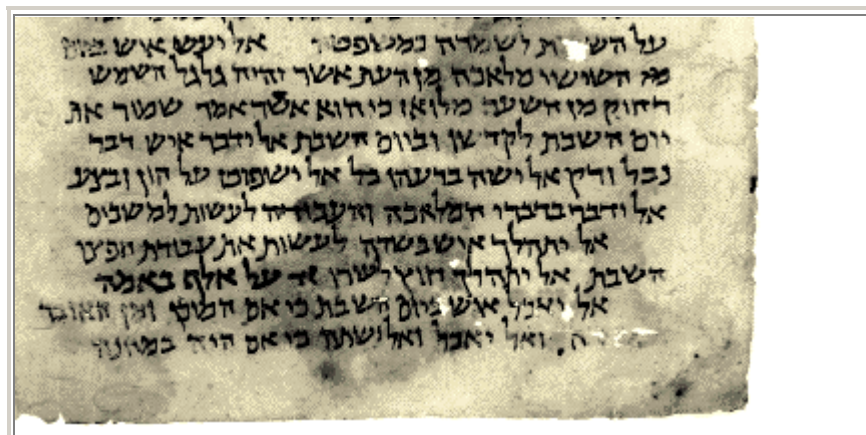 על השבת לשמרה כמשפטה אל יעש איש ביום
הששי מלאכה מן העת אשר יהיה גלגל השמש
רחוק מן השער מלואו כי הוא אשר אמר שמור את
יום השבת לקדשו וביום השבת אל ידבר איש דבר
נבל ורק אל ישה ברעהו כל אל ישפוט על הון ובצע
אל ידבר בדברי המלאכה והעבודה לעשות למשכים
אל יתהלך איש בשדה לעשות את עבודת חפצו
השבת אל יתהלך חוץ לעירו על אלף באמה
אל יאכל איש ביום השבת כי אם המוכן ומן האובד
ואל יאכל ואל ישתה כי אם היה במחנה